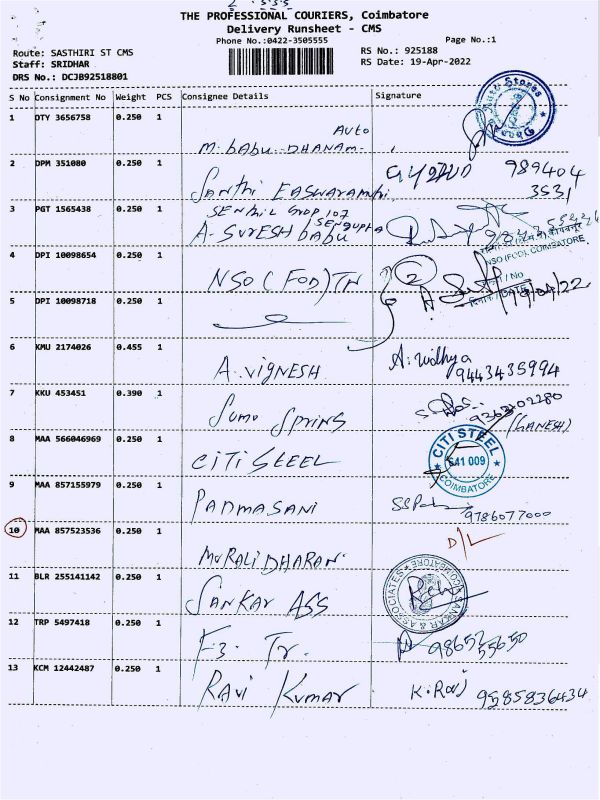 THE PROFESSIONAL COURIERS, Coimbatore
Delivery Runsheet - CMS
Phone No.:0422-3505555
Page No.:1
Route: SASTHIRI ST CMS
RS No.: 925188
Staff: SRIDHAR
RS Date: 19-Apr-2022
DRS No.: DCJB92518801
S No Consignment No Weight PCS Consignee Details Signature
1 DTY 3656758 0.250 1
Auto
M. babu - DHANAM
2 DPM 351080 0.250 1
Santhi EASWARAMthi 989404
3531
3 PGT 1565438 0.250 1
SENthil GROP 107
SENGUPTA
A. SURESH babu
NSO (FOD), COIMBATORE
4 DPI 10098654 0.250 1
NSO (FOD) TN 2
/ No
/ DATE 19/04/22
5 DPI 10098718 0.250 1
6 KMU 2174026 0.455 1
A. VIGNESH A. Vidhya
9443435994
7 KKU 453451 0.390 1
Sumo Springs 9363102280
(GANESH)
8 MAA 566046969 0.250 1
CITI STEEL
CITI STEEL
641 009
COIMBATORE
9 MAA 857155979 0.250 1
PADMASANI
9786077000
10 MAA 857523536 0.250 1
MURALIDHARAN D/L
11 BLR 255141142 0.250 1
SANKAR ASS
SANKAR & ASSOCIATES
COIMBATORE
12 TRP 5497418 0.250 1
F3. Tr. 98652 55650
13 KCM 12442487 0.250 1
Ravi Kumar K. Ravi 9585836434